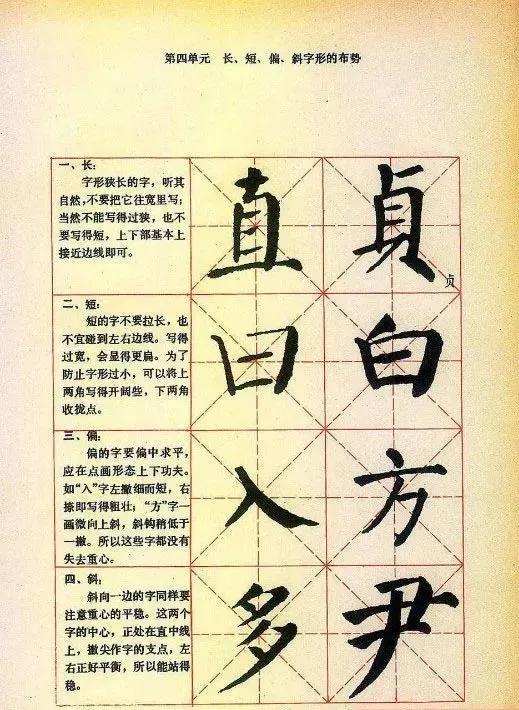 第四单元 长、短、偏、斜字形的布势
一、长：
字形狭长的字，听其
自然，不要把它往宽里写；
当然不能写得过狭，也不
要写得短，上下部基本上
接近边线即可。
直 貞
贞
二、短：
短的字不要拉长，也
不宜碰到左右边线。写得
过宽，会显得更扁。为了
防止字形过小，可以将上
两角写得开阔些，下两角
收拢点。
曰 白
三、偏：
偏的字要偏中求平，
应在点画形态上下功夫。
如“入”字左撇细而短，右
捺即写得粗壮；“方”字一
画微向上斜，斜钩稍低于
一撇。所以这些字都没有
失去重心。
入 方
四、斜：
斜向一边的字同样要
注意重心的平稳。这两个
字的中心，正处在直中线
上，撇尖作字的支点，左
右正好平衡，所以能站得
稳。
多 尹